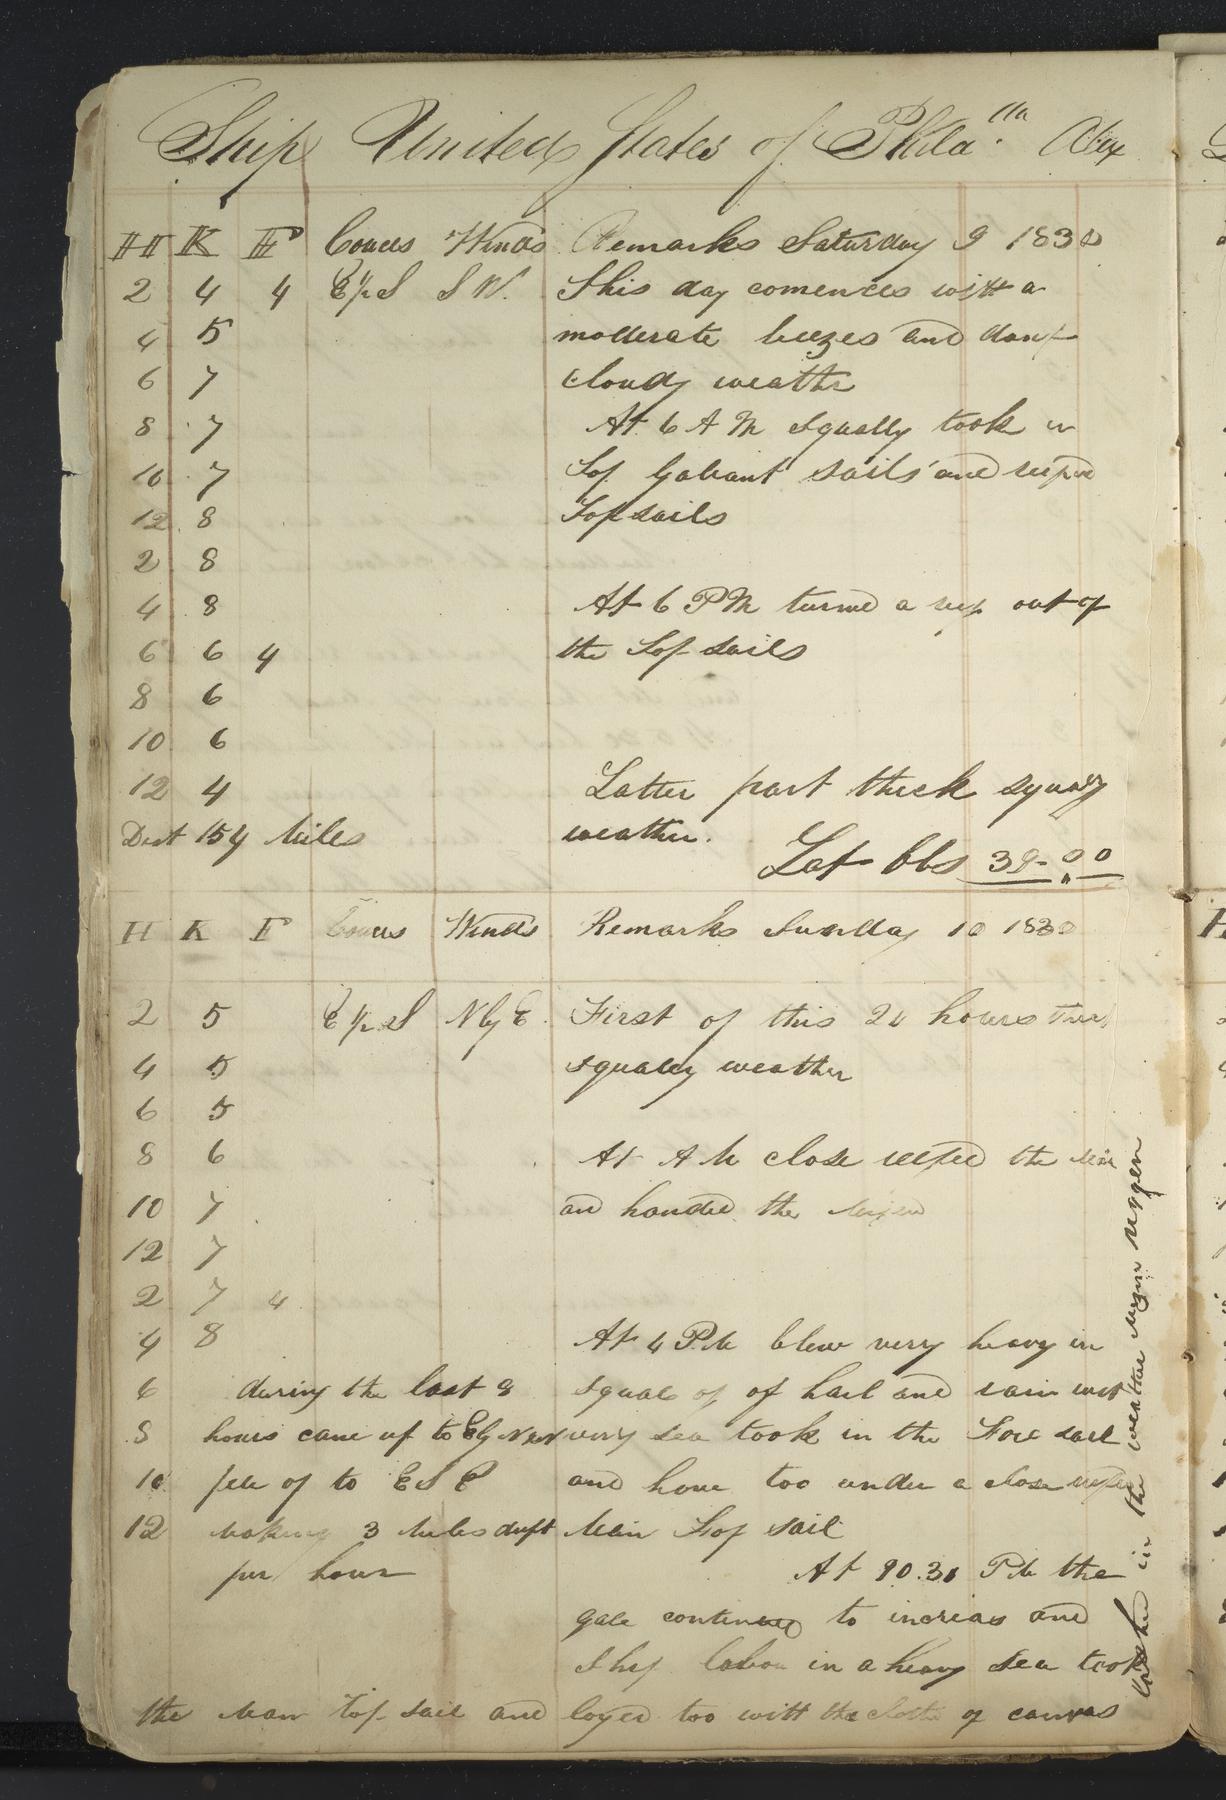 Ship United States of Phila lla
H K F Courss Winds Remarks Saturday 9 1830
2 4 4 E 1/2 S S W. This day comences with a
4 5 moderate beezes and
6 7 cloudy weather
8 7 At 6 A M squally took in
10 7 Top Galiant sails and reepd
12 8 Top sails
2 8
4 8 At 6 PM turned a reep out of
6 6 4 the Top sails
8 6
10 6
12 4 Latter part thick squaly
Dist 154 Miles weather.
Lat obs 39-00
H K F Courss Winds Remarks Sunday 10 1830
2 5 E 1/2 S N by E First of this 24 hours
4 5 squaley weather
6 5
8 6 At A M close reeped the
10 7 and handed the
12 7
2 7 4
4 8 At 4 P.M blew very heavy in
6 during the last 8 squals of of hail and rain
8 hours came up to very sea took in the Fore sail
10 fell of to E S E and hove too under a close
12 Making 3 Miles drift Main Top sail
per hour At 10.30 PM the
gale continued to increas and
Ship labou in a heavy sea took
the Main top sail and layed too with the cloth of canvas
lashed in the weather mizen